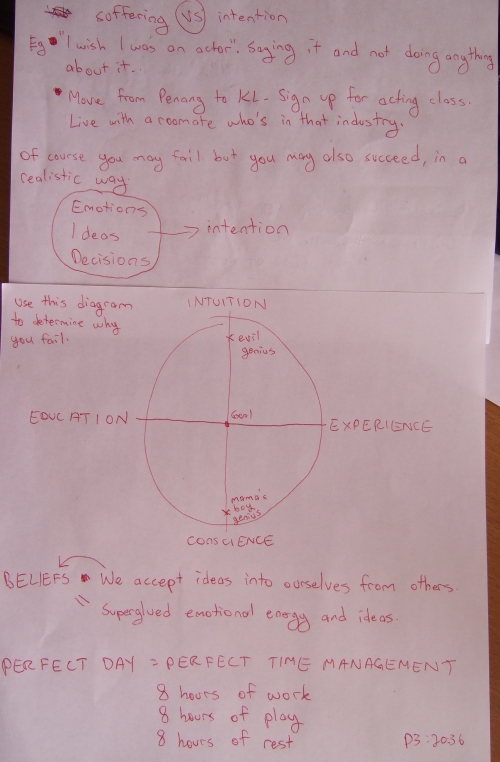 suffering VS intention
Eg • "I wish I was an actor". Saying it and not doing anything
about it..
• Move from Penang to KL. Sign up for acting class.
Live with a roomate who's in that industry.
Of course you may fail but you may also succeed, in a
realistic way.
Emotions
Ideas → intention
Decisions
Use this diagram
to determine why
you fail.
INTUITION
x evil
genius
EDUCATION
Goal
EXPERIENCE
x mama's
boy
genius
CONSCIENCE
BELIEFS • We accept ideas into ourselves from others.
= Superglued emotional energy and ideas.
PERFECT DAY = PERFECT TIME MANAGEMENT
8 hours of work
8 hours of play
8 hours of rest
P3:2036